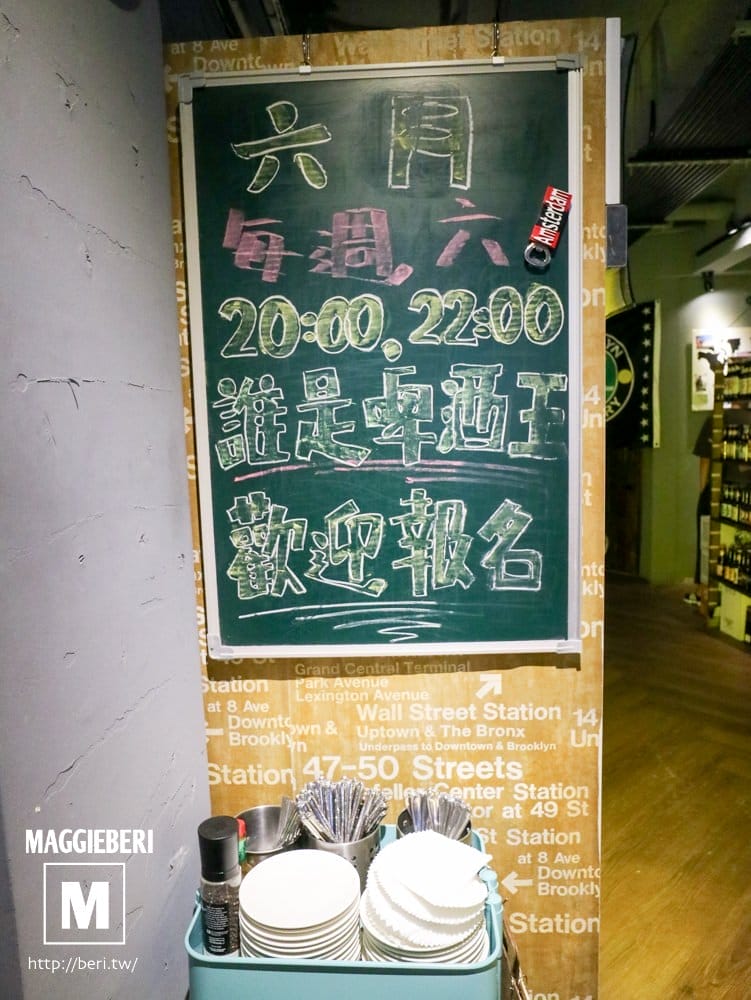 at 8 Ave
Wall Street Station
14
Downto
Un
六月
每週六
Amsterdam
20:00、22:00
誰是啤酒王
歡迎報名
Grand Central Terminal
Park Avenue
Lexington Avenue
Station
at 8 Ave
Wall Street Station
14
Downto
Uptown & The Bronx
Un
Brookly
Underpass to Downtown & Brooklyn
Station
47-50 Streets
Center Station
or at 49 St
St Station
at 8 Ave
Downto
Brookly
Station
MAGGIEBERI
M
http://beri.tw/